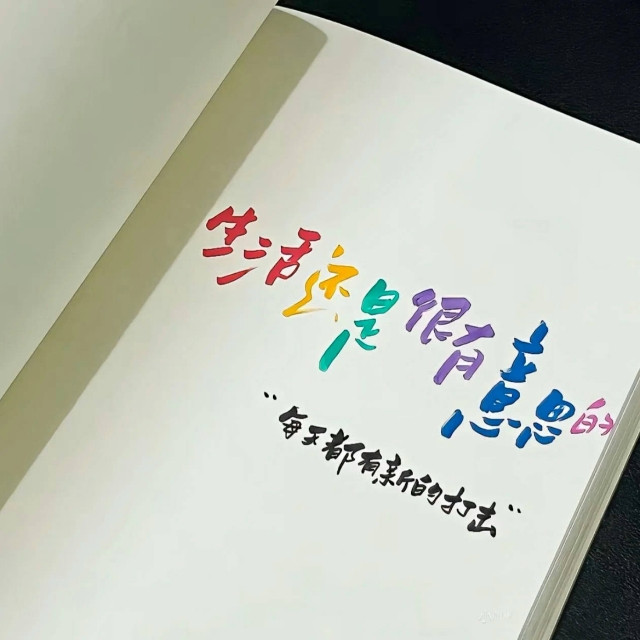 生活还是很有意思的
"每天都有新的打击"